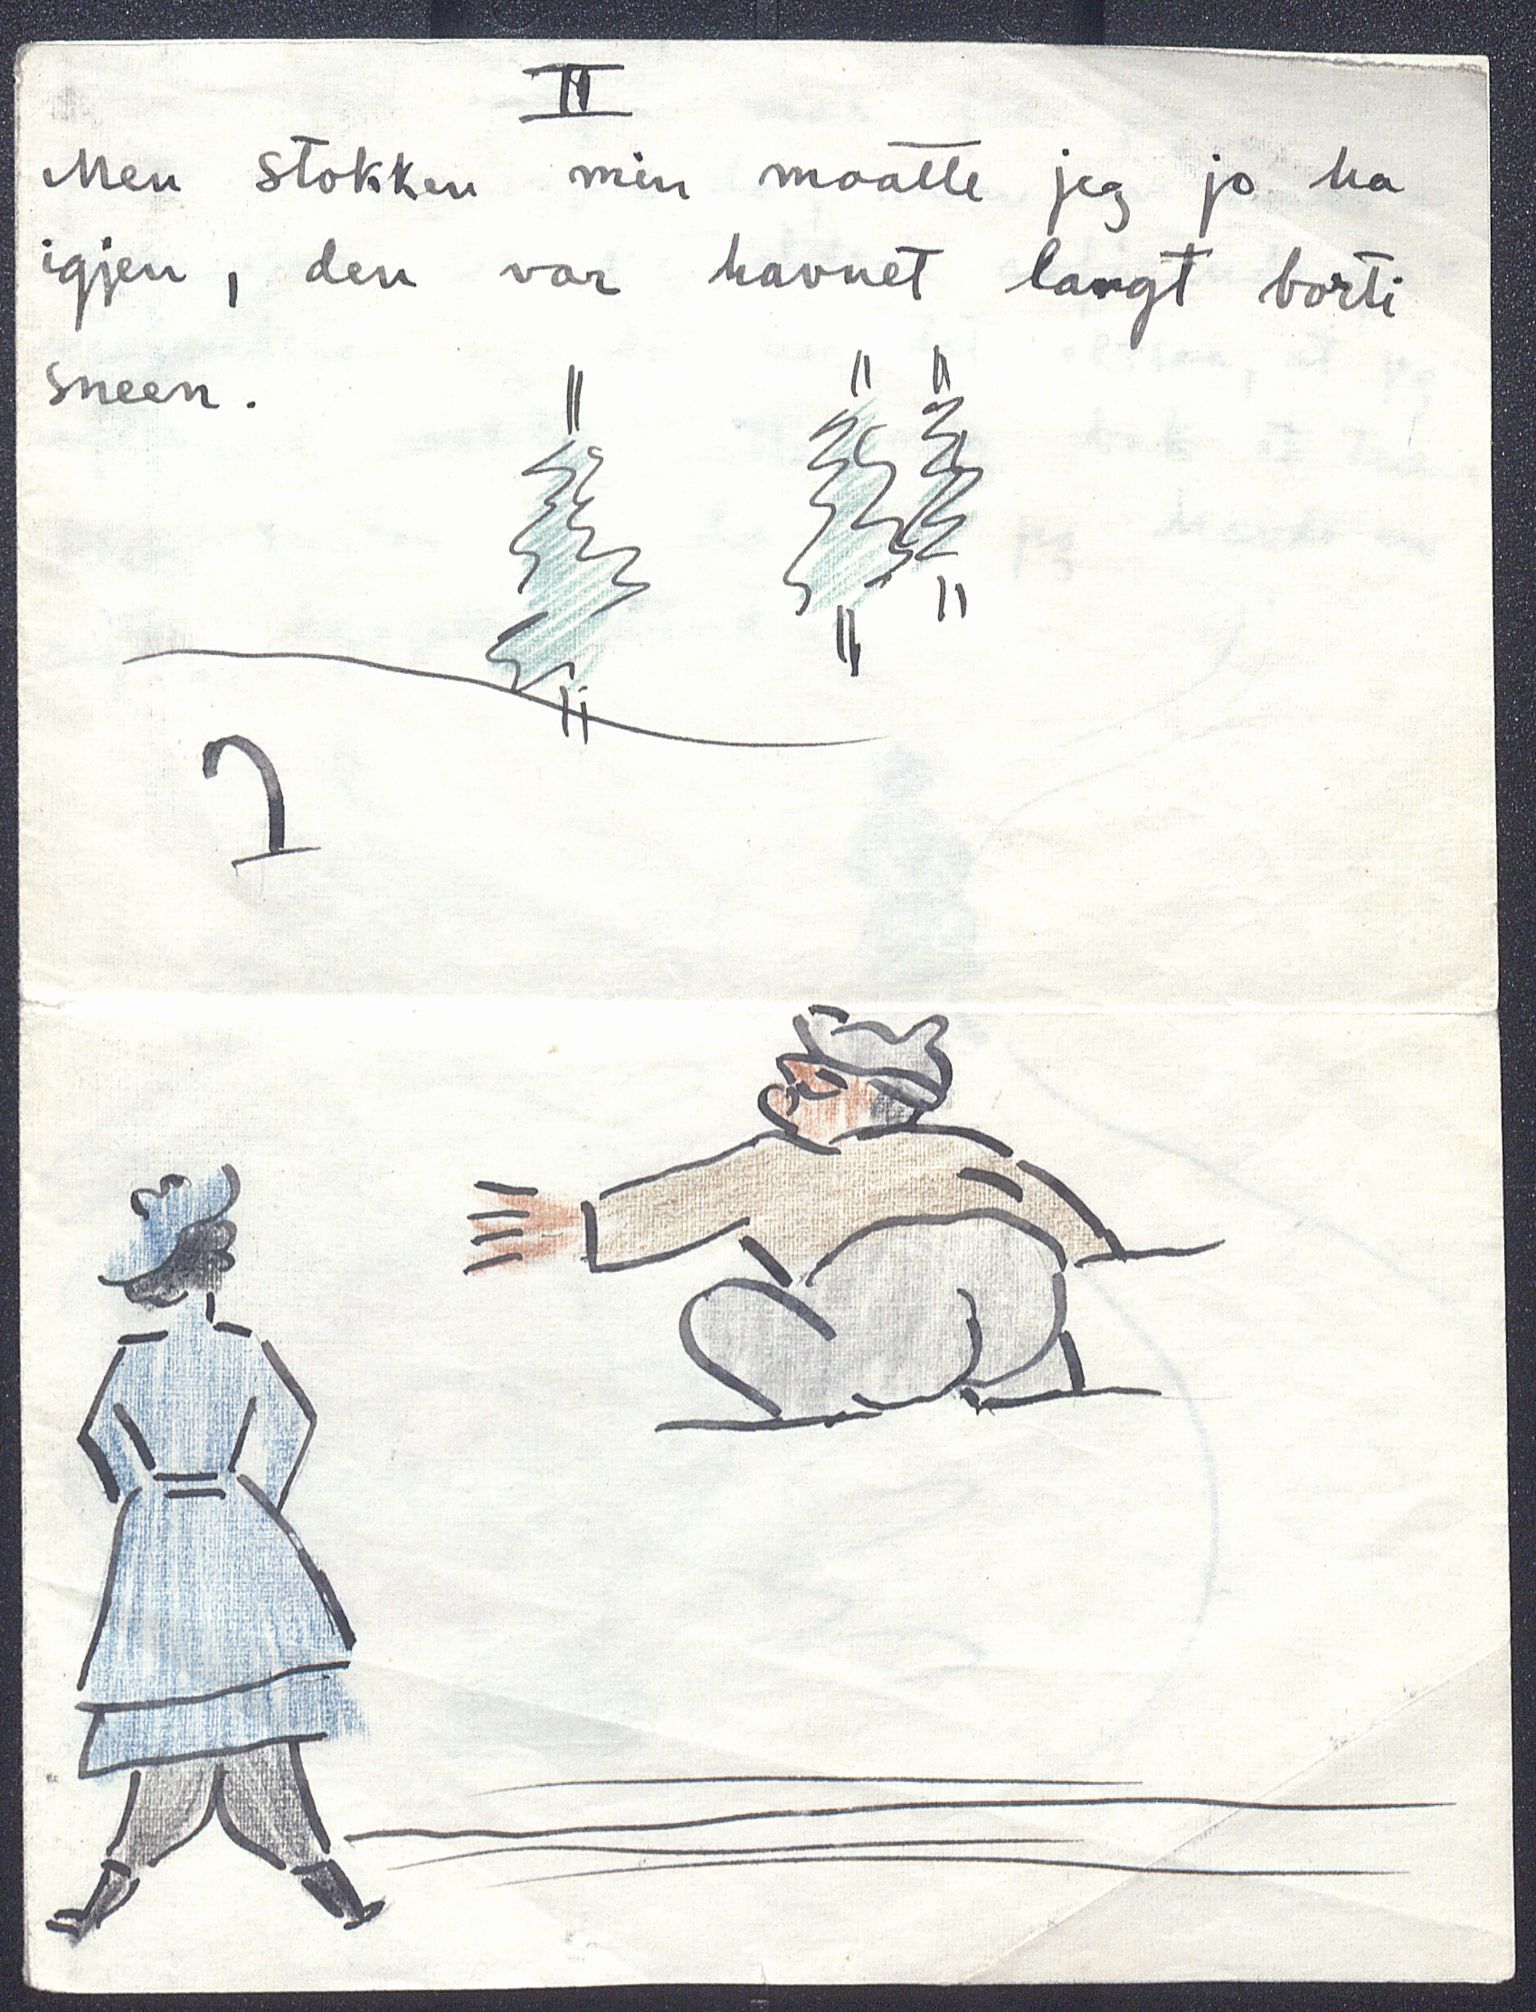 II
Men stokken min maatte jeg jo ha
igjen, den var havnet langt borti
sneen.